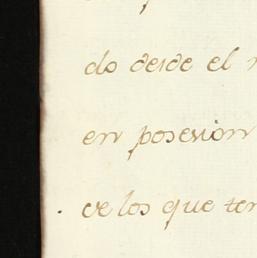 do desde el
en posesión
de los que ten